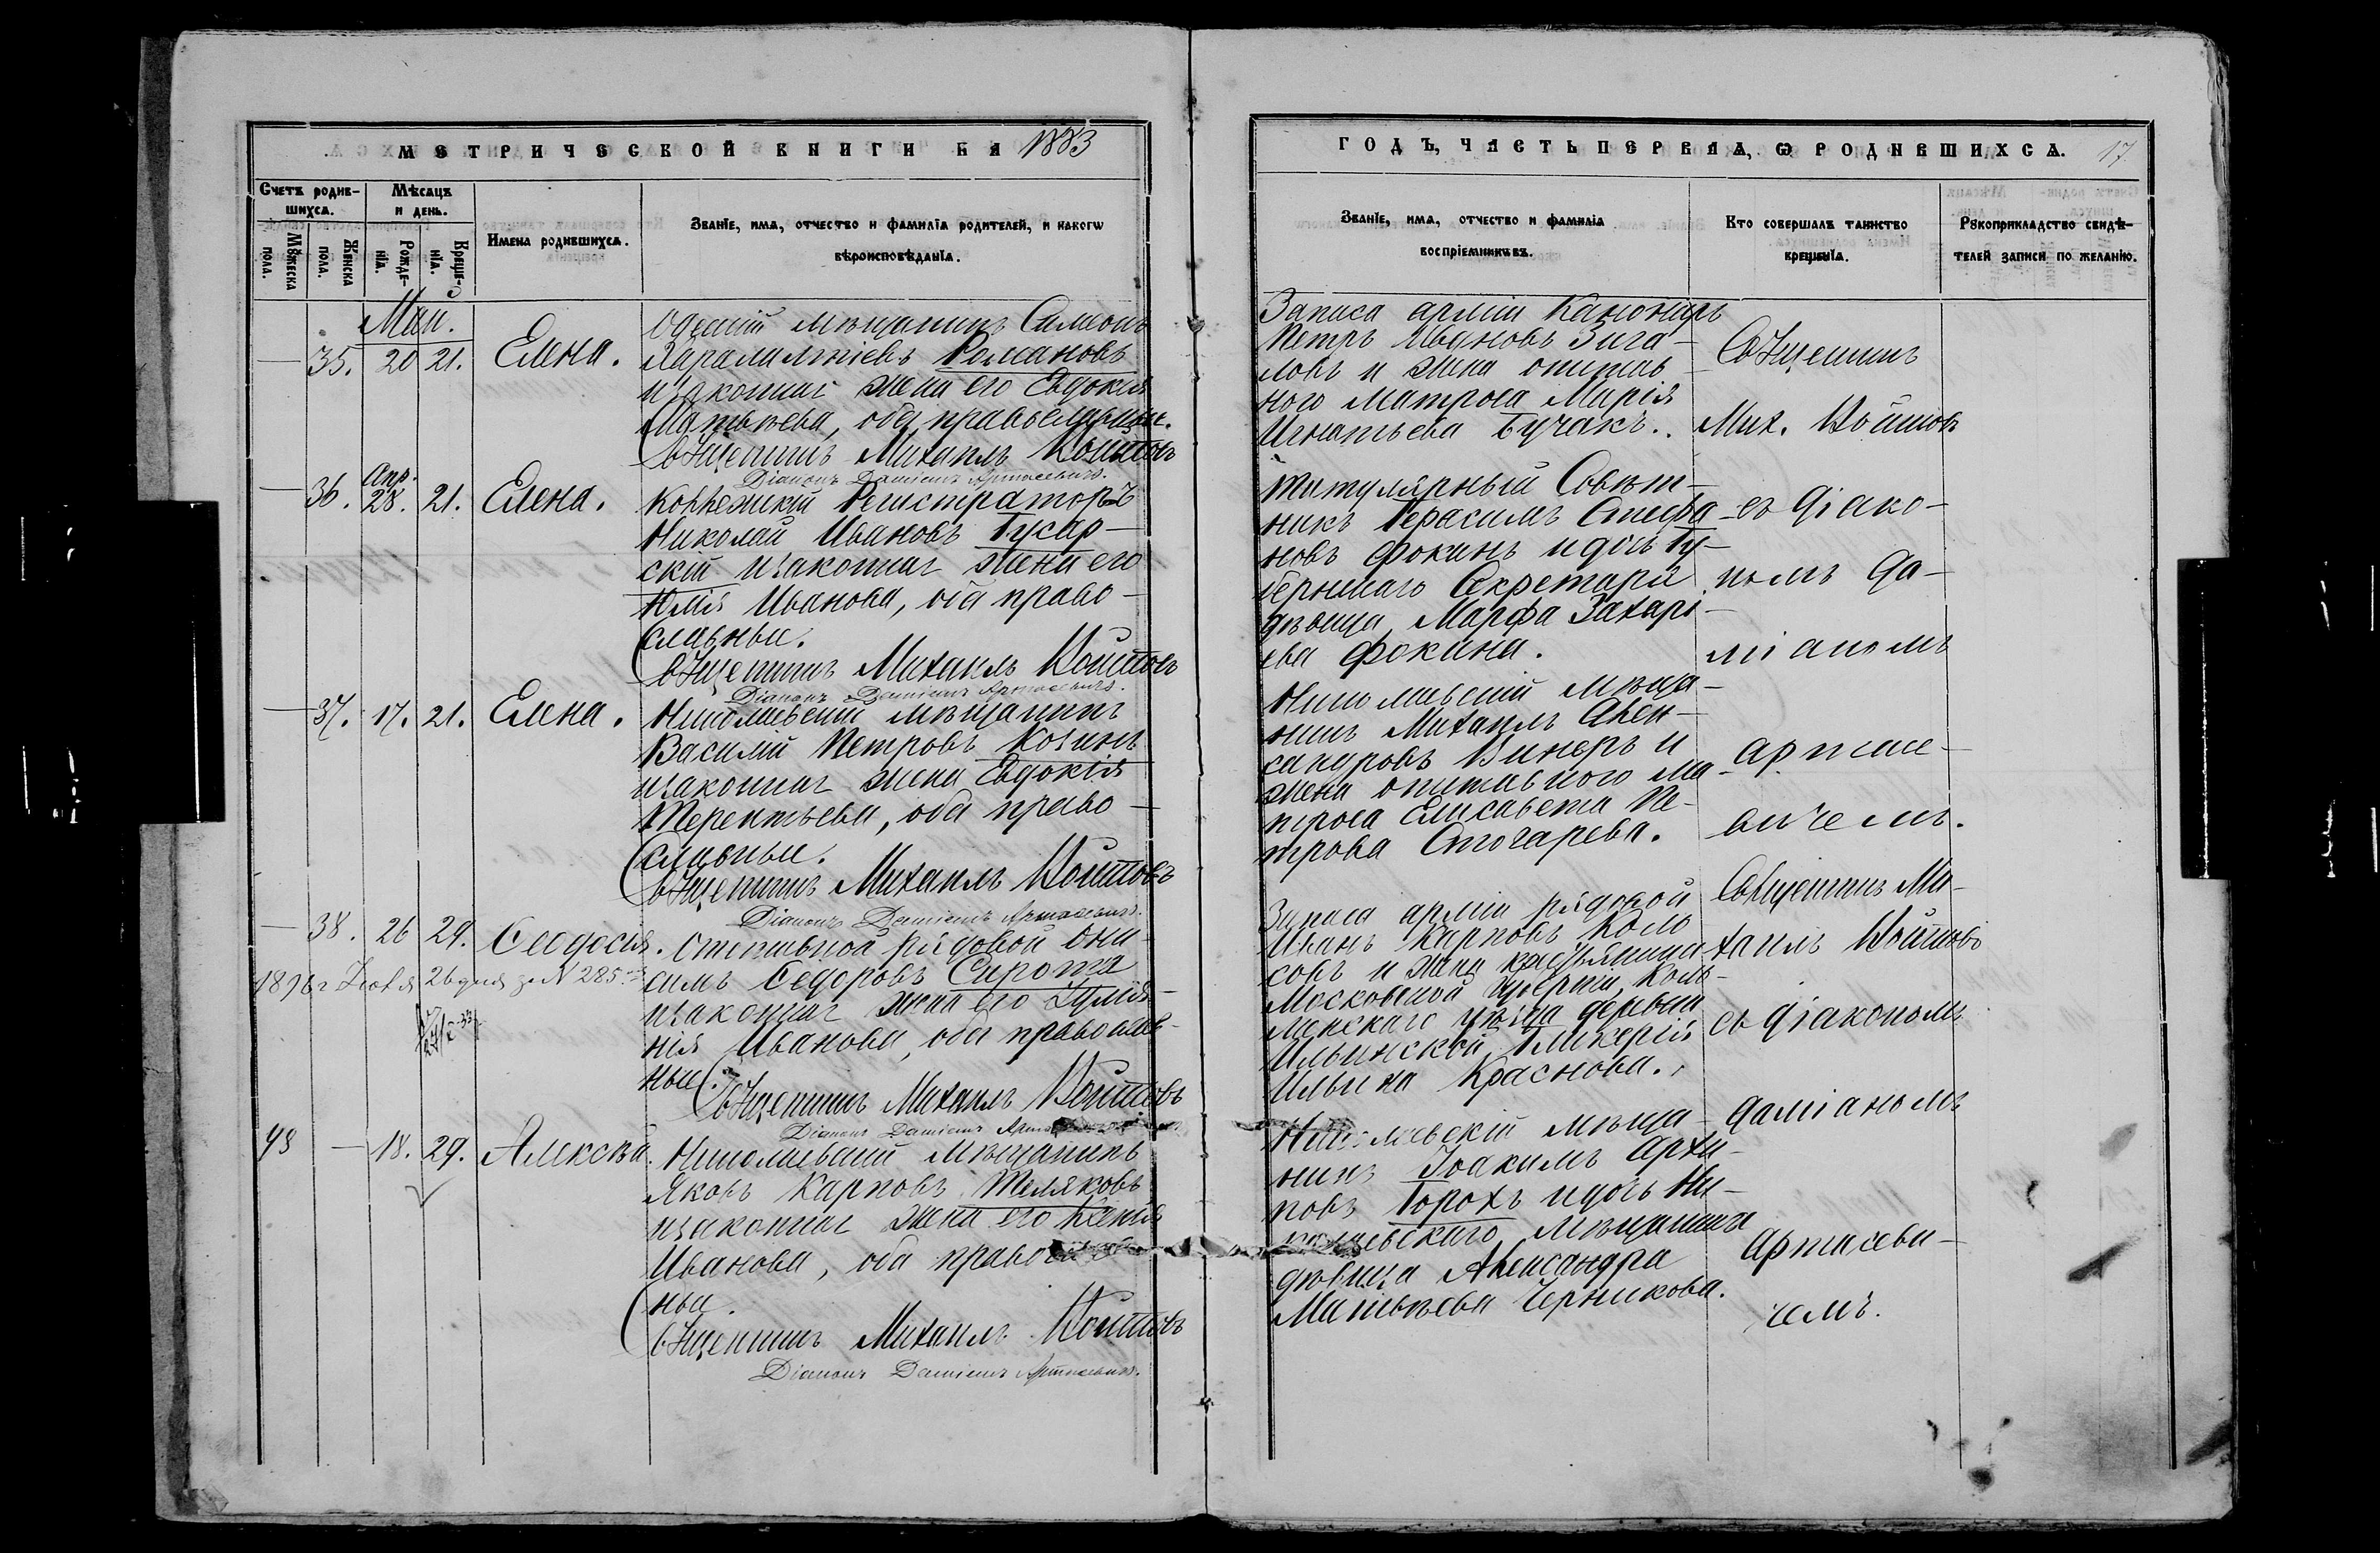 МЕТРИЧЕСКОЙ КНИГИ НА 1883
Счетъ родив-
шихся.
Мѣсяцъ
и день.
Мꙋжеска
пола.
Женска
пола.
Рожде-
нїа.
Креще-
нїа.
Имена родившихся.
Званїе, има, отчество и фамилїа родителей, и какогѡ
вѣроисповѣданїа.
Май.
— 35. 20 21. Елена.
Одесскій мѣщанинъ Симеонъ
Харалампіевъ Романовъ
и законная жена его Евдокія
Матвѣева, оба православные.
Священникъ Михаилъ Войтовъ
Діаконъ Даміанъ Артасевичъ.
— 36. Апр. 28. 21. Елена.
Коллежскій Регистраторъ
Николай Ивановъ Гусар-
скій и законная жена его
Юлія Иванова, оба право-
славные.
Священникъ Михаилъ Войтовъ
Діаконъ Даміанъ Артасевичъ.
— 37. 17. 21. Елена.
Николаевскій мѣщанинъ
Василій Петровъ Козинъ
и законная жена Евдокія
Терентьева, оба право-
славные.
Священникъ Михаилъ Войтовъ
Діаконъ Даміанъ Артасевичъ.
— 38. 26 29. Ѳеодосія.
1896 г 26 дня за N 285
Отставной рядовой Они-
симъ Ѳедоровъ Сирота
и законная жена его Іулія-
нія Иванова, оба православ-
ные.
Священникъ Михаилъ Войтовъ
Діаконъ Даміанъ
48 — 18. 29. Алексѣй.
Николаевскій мѣщанинъ
Яковъ Карповъ Теляковъ
и законная жена его Ксенія
Иванова, оба православ-
ные.
Священникъ Михаилъ Войтовъ
Діаконъ Даміанъ Артасевичъ.
ГОДЪ, ЧАСТЬ ПЕРВАѦ, Ѡ РОДИВШИХСѦ. 17
Званїе, има, отчество и фамилїа
воспрїемниковъ.
Кто совершалъ таинство
крещенїа.
Рꙋкоприкладство свидѣ-
телей записи по желанїю.
Запаса арміи Канониръ
Петръ Ивановъ Зига-
ловъ и жена отстав-
ного матроса Марія
Игнатьева Бучакъ.
Священникъ
Мих. Войтовъ
Титулярный Совѣт-
никъ Герасимъ Стефа-
новъ Фокинъ и дочь Гу-
бернскаго Секретаря
дѣвица Марфа Захарі-
ева Фокина.
съ Діако-
номъ Да-
міаномъ
Николаевскій мѣща-
нинъ Михаилъ Алек-
сандровъ Винеръ и
жена отставного ма-
троса Елисавета Пе-
трова Стогарева.
Артасе-
вичемъ.
Запаса арміи рядовой
Иванъ Карповъ Коло
совъ и жена крестьянина
Московской губерніи, Коло-
менскаго уѣзда деревни
Ильинской Гликерія
Ильина Краснова.
Священникъ Ми-
хаилъ Войтовъ
съ діакономъ
Даміаномъ
Николаевскій мѣща-
нинъ Іоакимъ Архи-
повъ Горохъ и дочь Ни-
колаевскаго мѣщанина
дѣвица Александра
Матвѣева Черникова.
Артасеви-
чемъ.